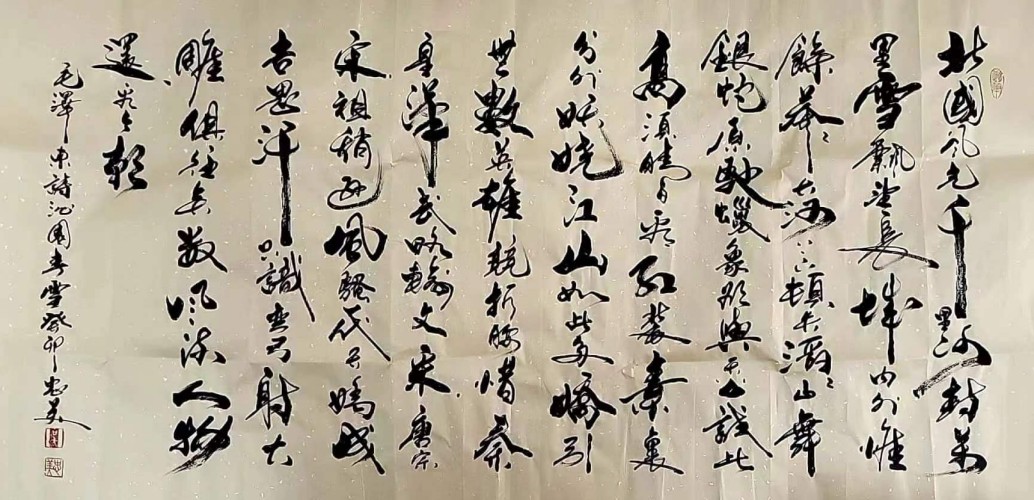 北國風光千里冰封萬
里雪飄望長城內外惟
餘莽莽大河上下頓失滔滔山舞
銀蛇原馳蠟象欲與天公試比
高須晴日看紅裝素裹
分外妖嬈江山如此多嬌引
無數英雄競折腰惜秦
皇漢武略輸文采唐宗
宋祖稍遜風騷代天嬌成
吉思汗只識彎弓射大
雕俱往矣數風流人物
還看今朝
毛澤東詩沁園春雪癸卯忠美